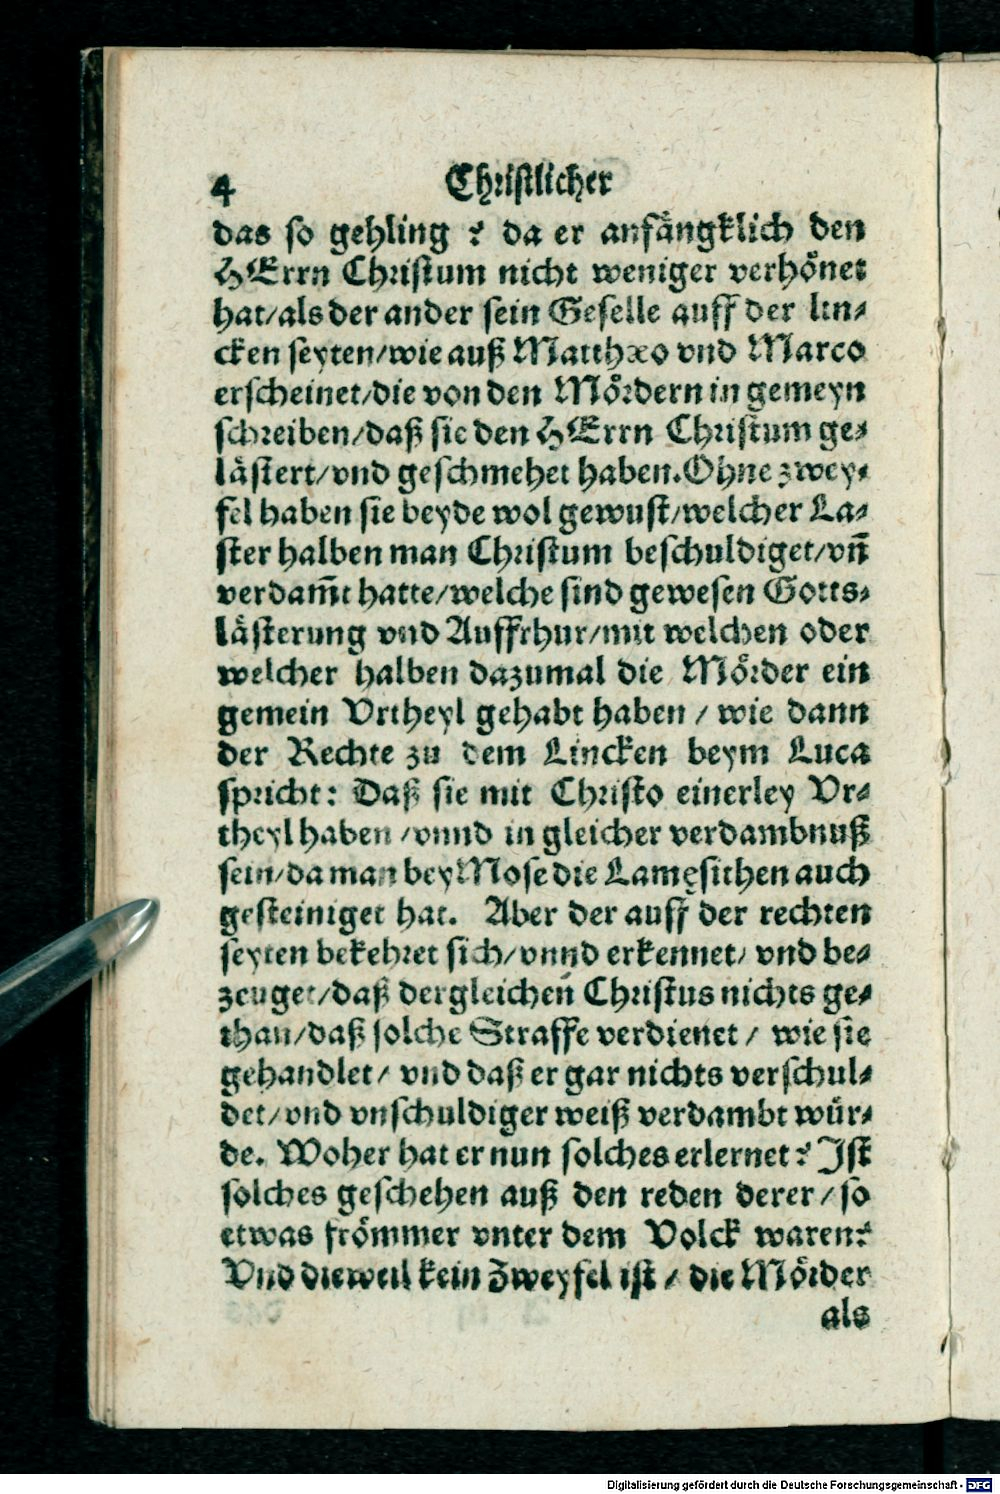 4 Christlicher
das so gehling? da er anfängklich den
HErrn Christum nicht weniger verhönet
hat/als der ander sein Geselle auff der lin-
cken seyten/wie auß Matthæo vnd Marco
erscheinet/die von den Mördern in gemeyn
schreiben/daß sie den HErrn Christum ge-
lästert/vnd geschmehet haben. Ohne zwey-
fel haben sie beyde wol gewust/welcher La-
ster halben man Christum beschuldiget/vñ
verdam̃t hatte/welche sind gewesen Gotts-
lästerung vnd Auffrhur/mit welchen oder
welcher halben dazumal die Mörder ein
gemein Vrtheyl gehabt haben / wie dann
der Rechte zu dem Lincken beym Luca
spricht: Daß sie mit Christo einerley Vr-
theyl haben /vnnd in gleicher verdambnuß
sein/da man bey Mose die Lamęsithen auch
gesteiniget hat. Aber der auff der rechten
seyten bekehret sich/vnnd erkennet/ vnd be-
zeuget/daß dergleichen Christus nichts ge-
than/daß solche Straffe verdienet / wie sie
gehandlet/ vnd daß er gar nichts verschul-
det/vnd vnschuldiger weiß verdambt wür-
de. Woher hat er nun solches erlernet? Ist
solches geschehen auß den reden derer/so
etwas frömmer vnter dem Volck waren?
Vnd dieweil kein Zweyfel ist / die Mörder
als
Digitalisierung gefördert durch die Deutsche Forschungsgemeinschaft - DFG